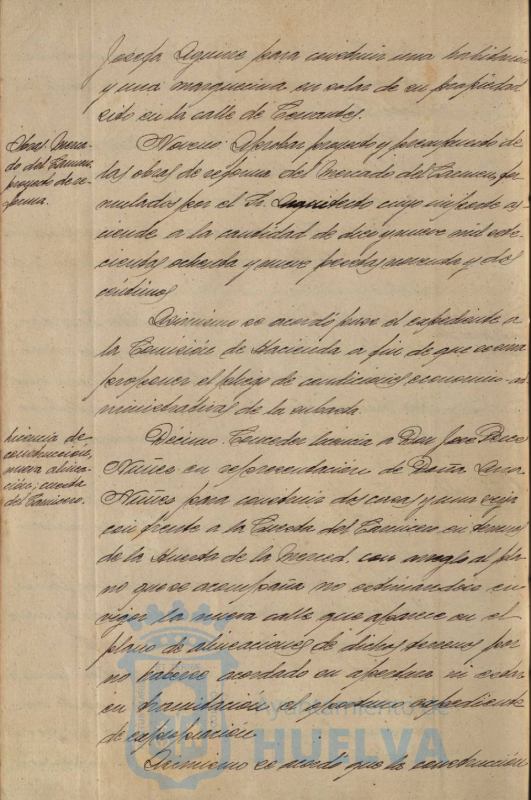 Josefa Aquino para construir una habitación
y una marquesina en solar de su propiedad
sito en la calle de Cervantes.
Obras. Merca-
do del Carmen,
proyecto de re-
forma.
Noveno: Aprobar proyecto y presupuesto de
las obras de reforma del Mercado del Carmen for-
mulados por el Sr. Arquitecto cuyo importe as-
ciende a la cantidad de diez y nueve mil sete-
cientas ochenta y nueve pesetas noventa y dos
céntimos.
Asimismo se acordó pase el expediente a
la Comisión de Hacienda a fin de que se sirva
proponer el pliego de condiciones económico-ad-
ministrativas de la subasta.
Licencia de
construcción,
nueva alinea-
ción; cuesta
del Carnicero.
Décimo: Conceder licencia a Don José Pérez
Núñez en representación de Doña Ana
Núñez para construir dos casas y una
con frente a la Cuesta del Carnicero, en terrenos
de la Huerta de la Merced, con arreglo al pla-
no que se acompaña no estimándose en
vigor la nueva calle que aparece en el
plano de alineaciones de dichos terrenos por
no haberse acordado su apertura ni estar
en tramitación el oportuno expediente
de expropiación.
Asimismo se acordó que la construcción
Ayuntamiento de
HUELVA